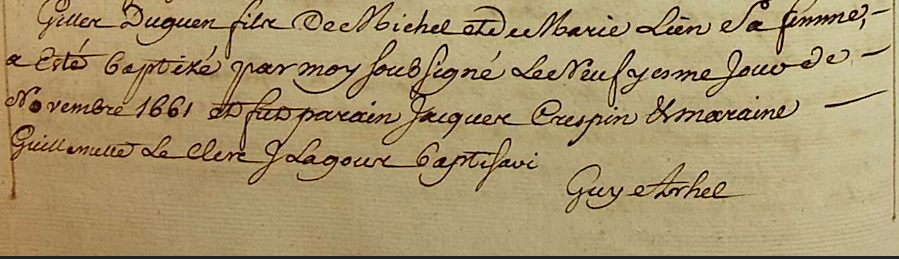 Gilles Duguen fils De Michel et de Marie Lien Sa femme,
a Esté baptizé par moy soubsigné Le Neufyesme Jour de
Novembre 1661 et fut parain Jacques Crespin & maraine
Guillemette Le Clerc J Lagour baptisavi
Guy Arhel